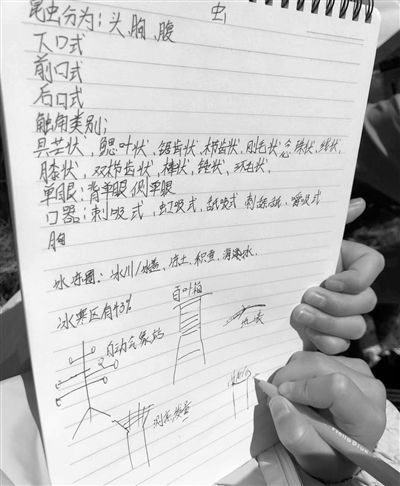 虫
昆虫分为：头、胸、腹
下口式
前口式
后口式
触角类别：
具芒状、鳃叶状、锯齿状、栉齿状、刚毛状、念珠状、线状、
膝状、双栉齿状、棒状、锤状、环毛状、
单眼：背单眼 侧单眼
口器：刺吸式、虹吸式、舐吸式、刺舐舐、嚼吸式
胸
冰冻圈：冰川/冰盖、冻土、积雪、海湖冰、
冰冻区有43%
百叶箱
自动气象站
测蒸散量